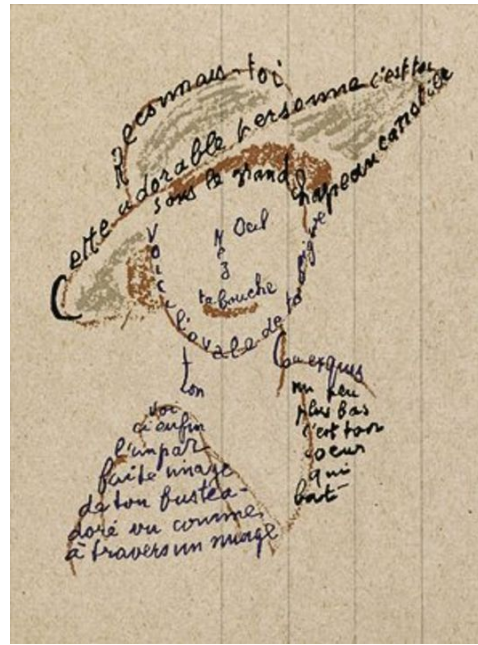 Reconnais-toi
Cette adorable personne c'est toi
Sous le grand chapeau canotier
Oeil
Nez
ta bouche
Voici l'ovale de ta figure
ton
Cou exquis
voi
ci enfin
l'impar
faite image
de ton buste a-
doré vu comme
à travers un nuage
un peu
plus bas
c'est ton
coeur
qui
bat